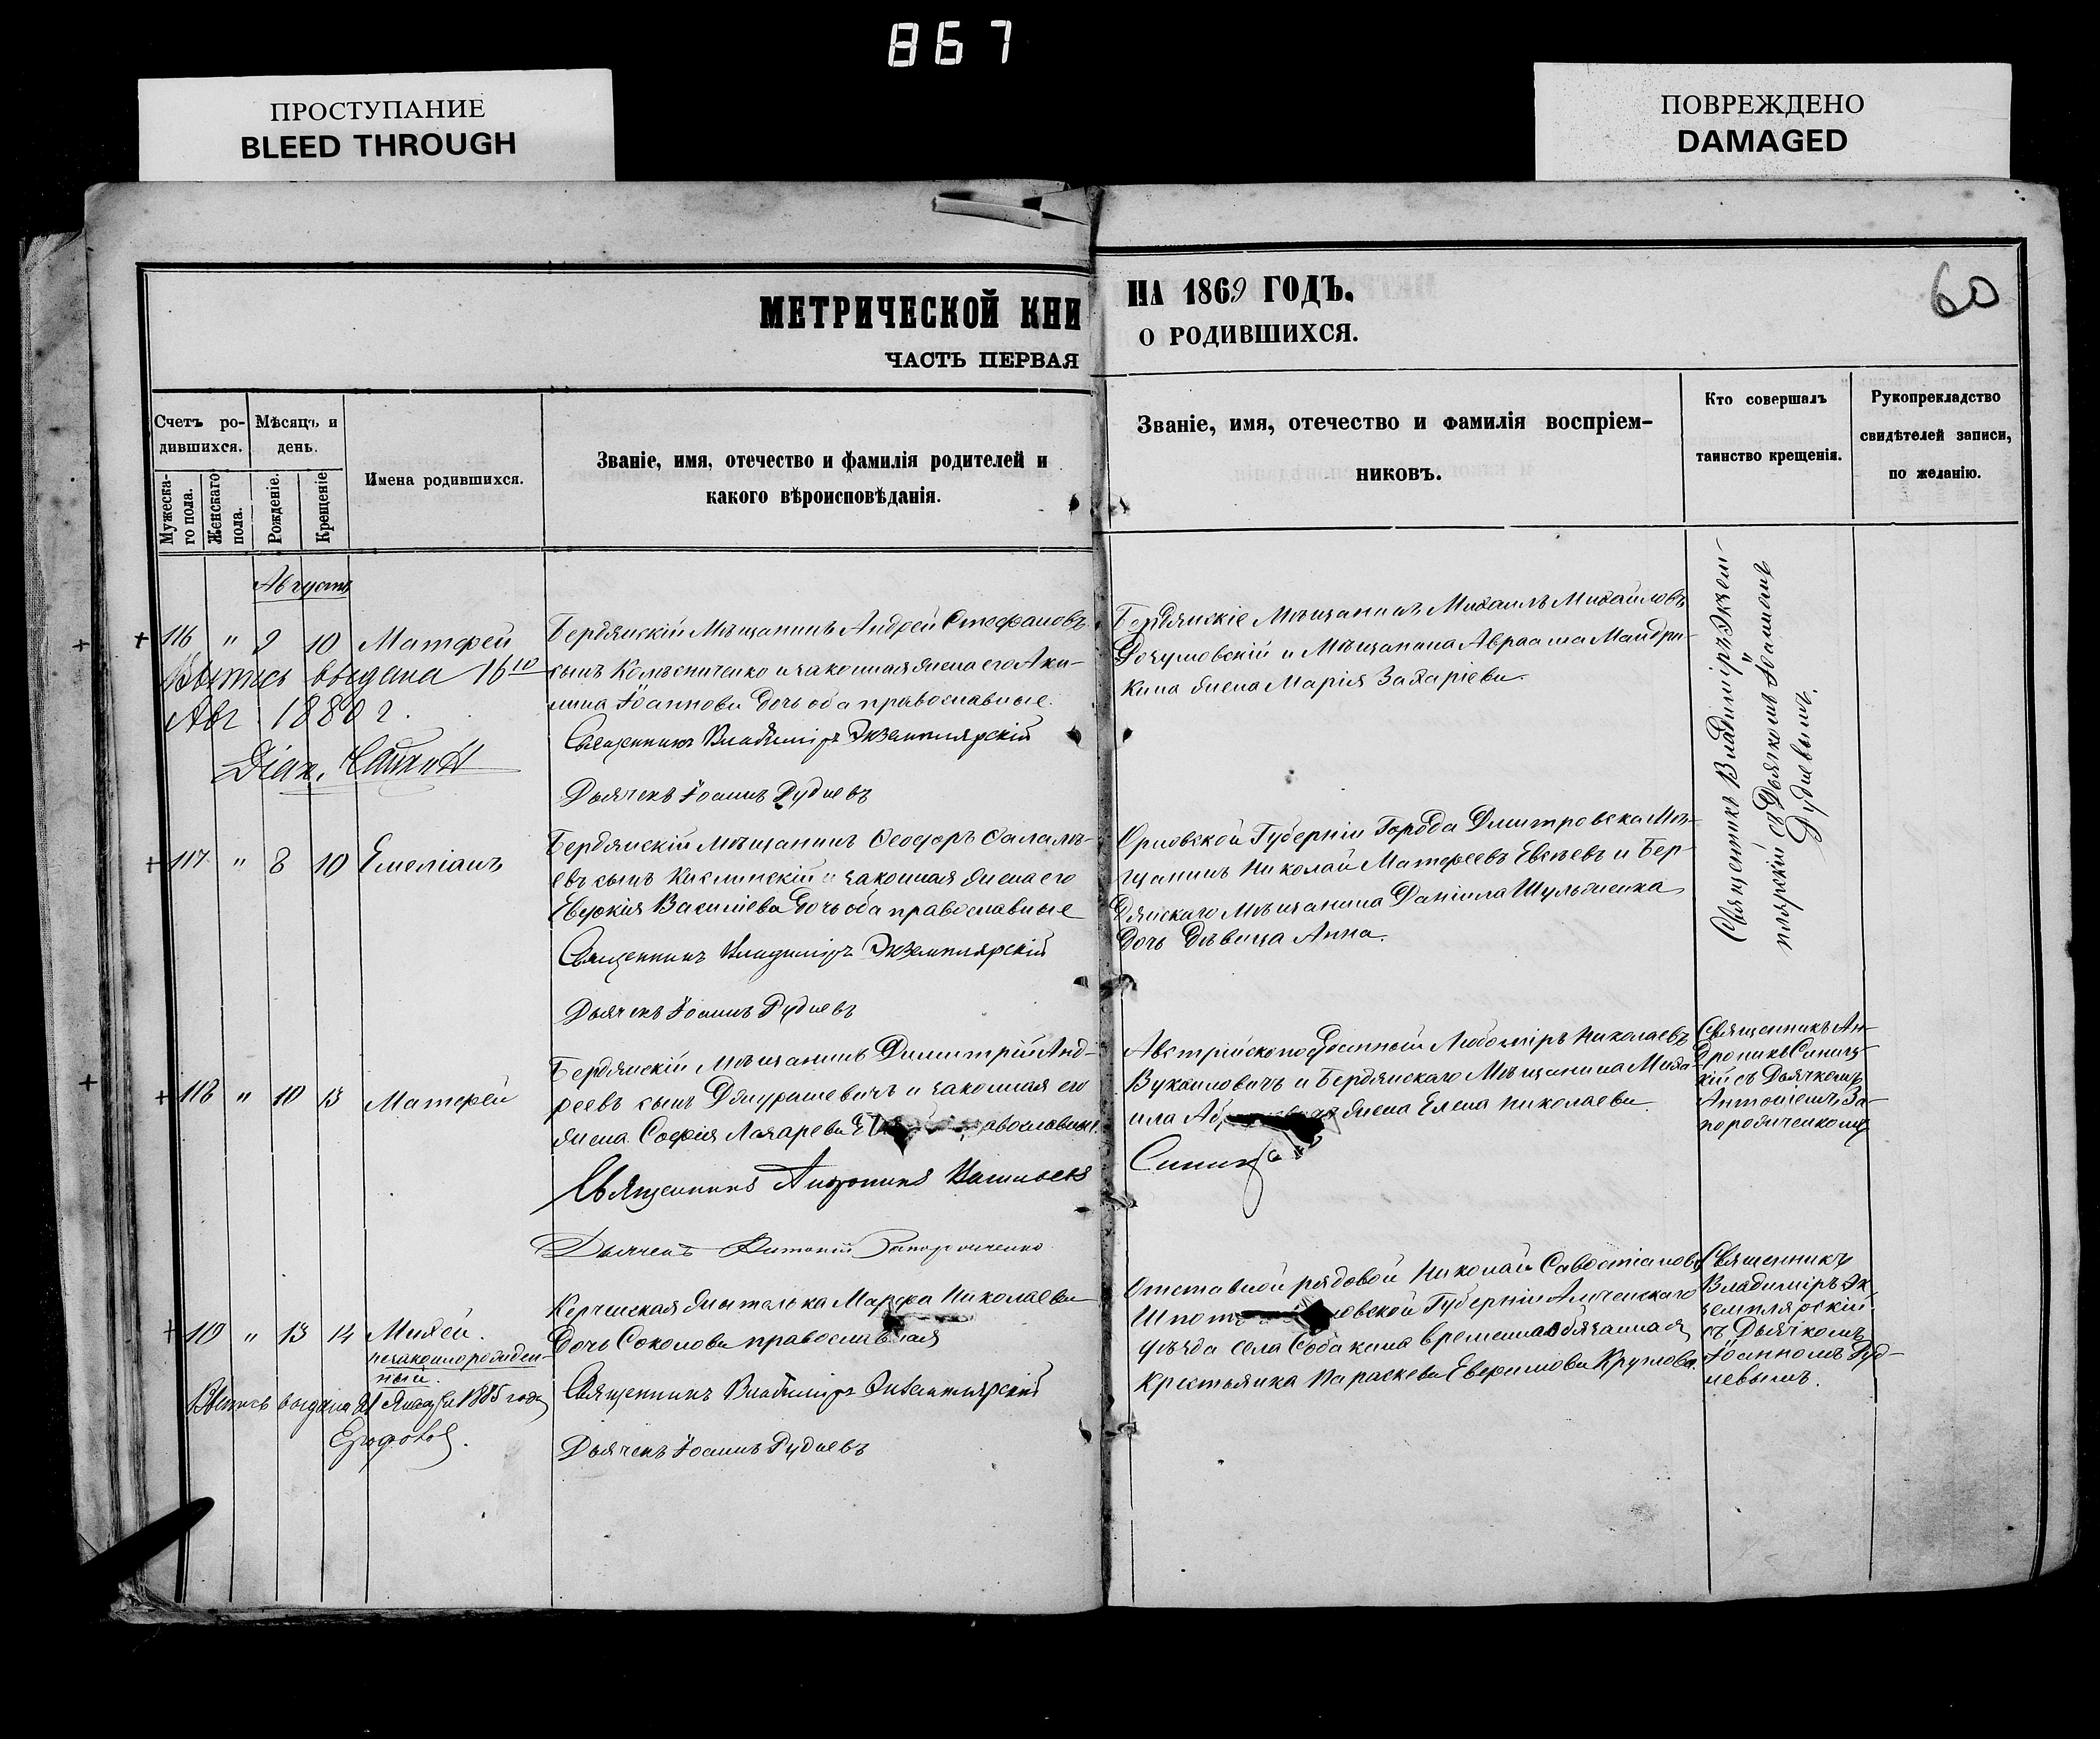 867
ПРОСТУПАНИЕ
BLEED THROUGH
ПОВРЕЖДЕНО
DAMAGED
60
МЕТРИЧЕСКОЙ КНИ
ЧАСТЬ ПЕРВАЯ
НА 1869 ГОДЪ.
О РОДИВШИХСЯ.
Счетъ ро-
дившихся.
Мужеска-
го пола.
Женскаго
пола.
Мѣсяцъ и
день.
Рожденіе.
Крещеніе
Имена родившихся.
Званіе, имя, отечество и фамилія родителей и
какого вѣроисповѣданія.
Званіе, имя, отечество и фамилія воспріем-
никовъ.
Кто совершалъ
таинство крещенія.
Рукопрекладство
свидѣтелей записи,
по желанію.
Августъ
116 " 9 10 Матфей
Выпись выдана 16го
Авг. 1880 г.
Діак.
Бердянскій Мѣщанинъ Андрей Стефановъ
сынъ Колѣсниченко и законная жена его Аки-
лина Іоаннова дочь оба православные.
Священникъ Владиміръ Экземплярскій
Дьячекъ Іоаннъ Рудневъ
Бердянскіе Мѣщанинъ Михаилъ Михайловъ
и Мѣщанина Авраама Мандри-
кина жена Марія Захаріева.
Священникъ Владиміръ Экзем-
плярскій съ Дьячкомъ Іоанномъ
Рудневымъ.
117 " 8 10 Емеліанъ
Бердянскій Мѣщанинъ Ѳеодоръ
евъ сынъ Кислинскій и законная жена его
Евдокія Василіева дочь оба православные
Священникъ Владиміръ Экземплярскій
Дьячекъ Іоаннъ Рудневъ
Орловской Губерніи Города Дмитровска Мѣ-
щанинъ Николай Матфеевъ Евсѣевъ и Бер-
дянскаго Мѣщанина Даніила Шульженка
дочь дѣвица Анна.
118 " 10 13 Матфей
Бердянскій Мѣщанинъ Димитрій Анд-
реевъ сынъ и законная его
жена Софія Лазарева
Священникъ Андроникъ Васильевъ
Синиц
Дьячекъ Антоній Запорожченко
Австрійскоподданный Любоміръ Николаевъ
Вукаиловичъ и Бердянскаго Мѣщанина Миха-
ила жена Елена Николаева.
Священникъ Ан-
дроникъ Синиц-
кій съ Дьячкомъ
Антоніемъ За-
порожченкомъ
" 13 14 Михей.
незаконнорожден-
ный.
Выпись выдана 21 Января 1885 года
Керченская жителька Марфа Николаева
дочь Соколова православная
Священникъ Владиміръ Экземплярскій
Дьячекъ Іоаннъ Рудневъ
Отставной рядовой Николай Савостіановъ
овской Губерніи
уѣзда села Собакина временнообязанная
крестьянка Параскева Евфимова Круглова
Священникъ
Владиміръ Эк-
земплярскій
съ Дьячкомъ
Іоанномъ Руд-
невымъ.